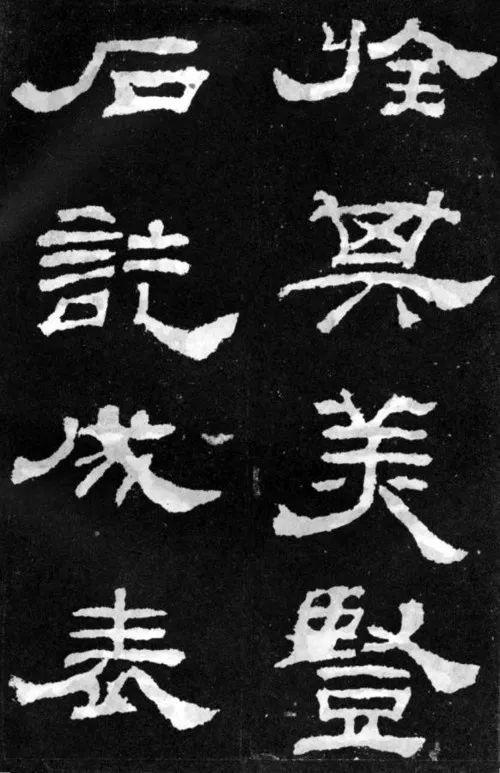 其美豎
石訖成表